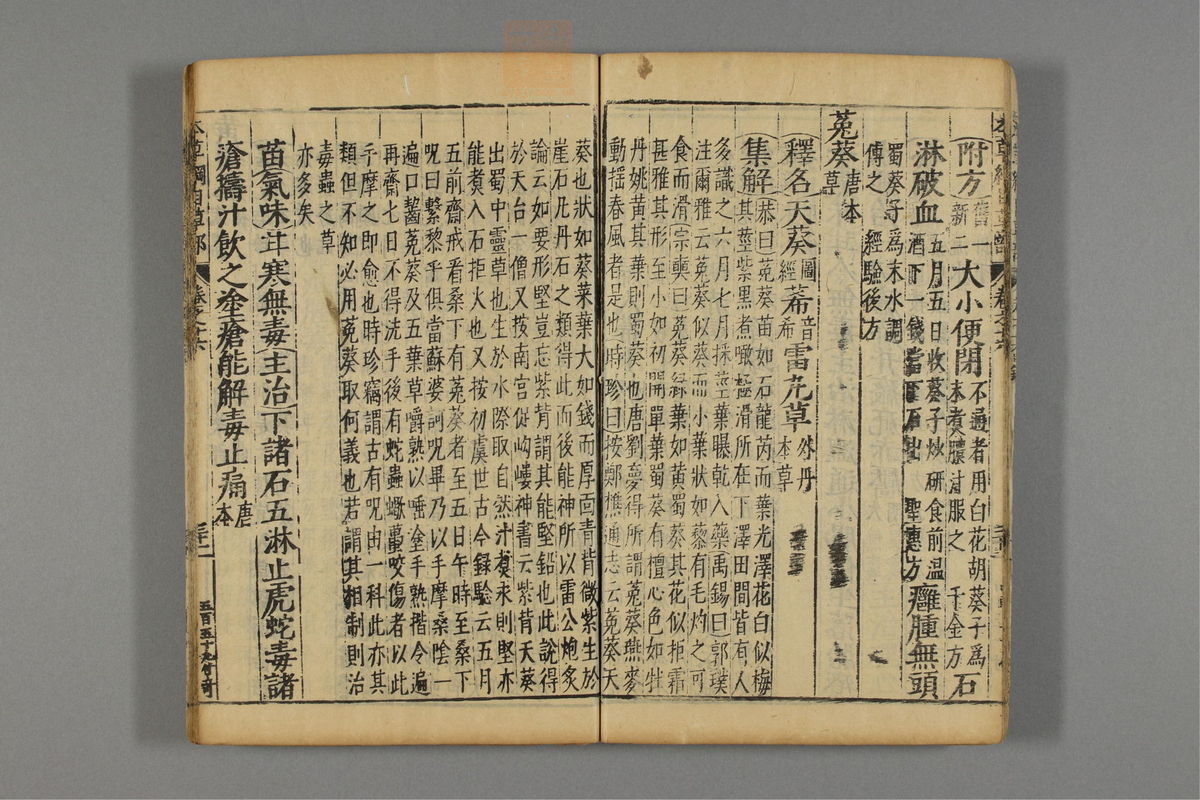 附方舊一新二大小便閉不通者用白花胡葵子爲末煑膿汁服之 千金方石
淋破血五月五日收葵子炒研食前溫酒下一錢當下石出 聖惠方癰腫無頭
蜀葵子爲末水調傅之 經驗後方
菟葵唐本草
釋名天葵圖經莃音希雷丸草外丹本草
集解恭曰菟葵苗如石龍芮而葉光澤花白似梅
其莖紫黑煮噉極滑所在下澤田間皆有人
多識之六月七月採莖葉曝乾入藥禹錫曰郭璞
注爾雅云菟葵似葵而小葉狀如藜有毛灼之可
食而滑宗奭曰菟葵綠葉如黃蜀葵其花似拒霜
甚雅其形至小如初開單葉蜀葵有檀心色如牡
丹姚黃其葉則蜀葵也唐劉夢得所謂菟葵燕麥
動揺春風者是也時珍曰按鄭樵通志云菟葵天
葵也狀如葵菜葉大如錢而厚面青背微紫生於
崖石凢丹石之類得此而後能神所以雷公炮炙
論云如要形堅豈忘紫背謂其能堅鉛也此說得
於天台一僧又按南宮從岣嶁神書云紫背天葵
出蜀中靈草也生於水際取自然汁煑汞則堅亦
能煮入石拒火也又按初虞世古今録驗云五月
五前齋戒看桑下有菟葵者至五日午時至桑下
呪曰繫黎乎俱當蘇婆訶呪畢乃以手摩桑陰一
遍口齧菟葵及五葉草嚼熟以唾塗手熟揩令遍
再齋七日不得洗手後有蛇蟲蠍蠆咬傷者以此
手摩之即愈也時珍竊謂古有呪由一科此亦其
類但不知必用菟葵取何義也若謂其相制則治
毒蟲之草
亦多矣
苗氣味甘寒無毒主治下諸石五淋止虎蛇毒諸
瘡擣汁飲之塗瘡能解毒止痛唐本
本草綱目草部 卷之十六